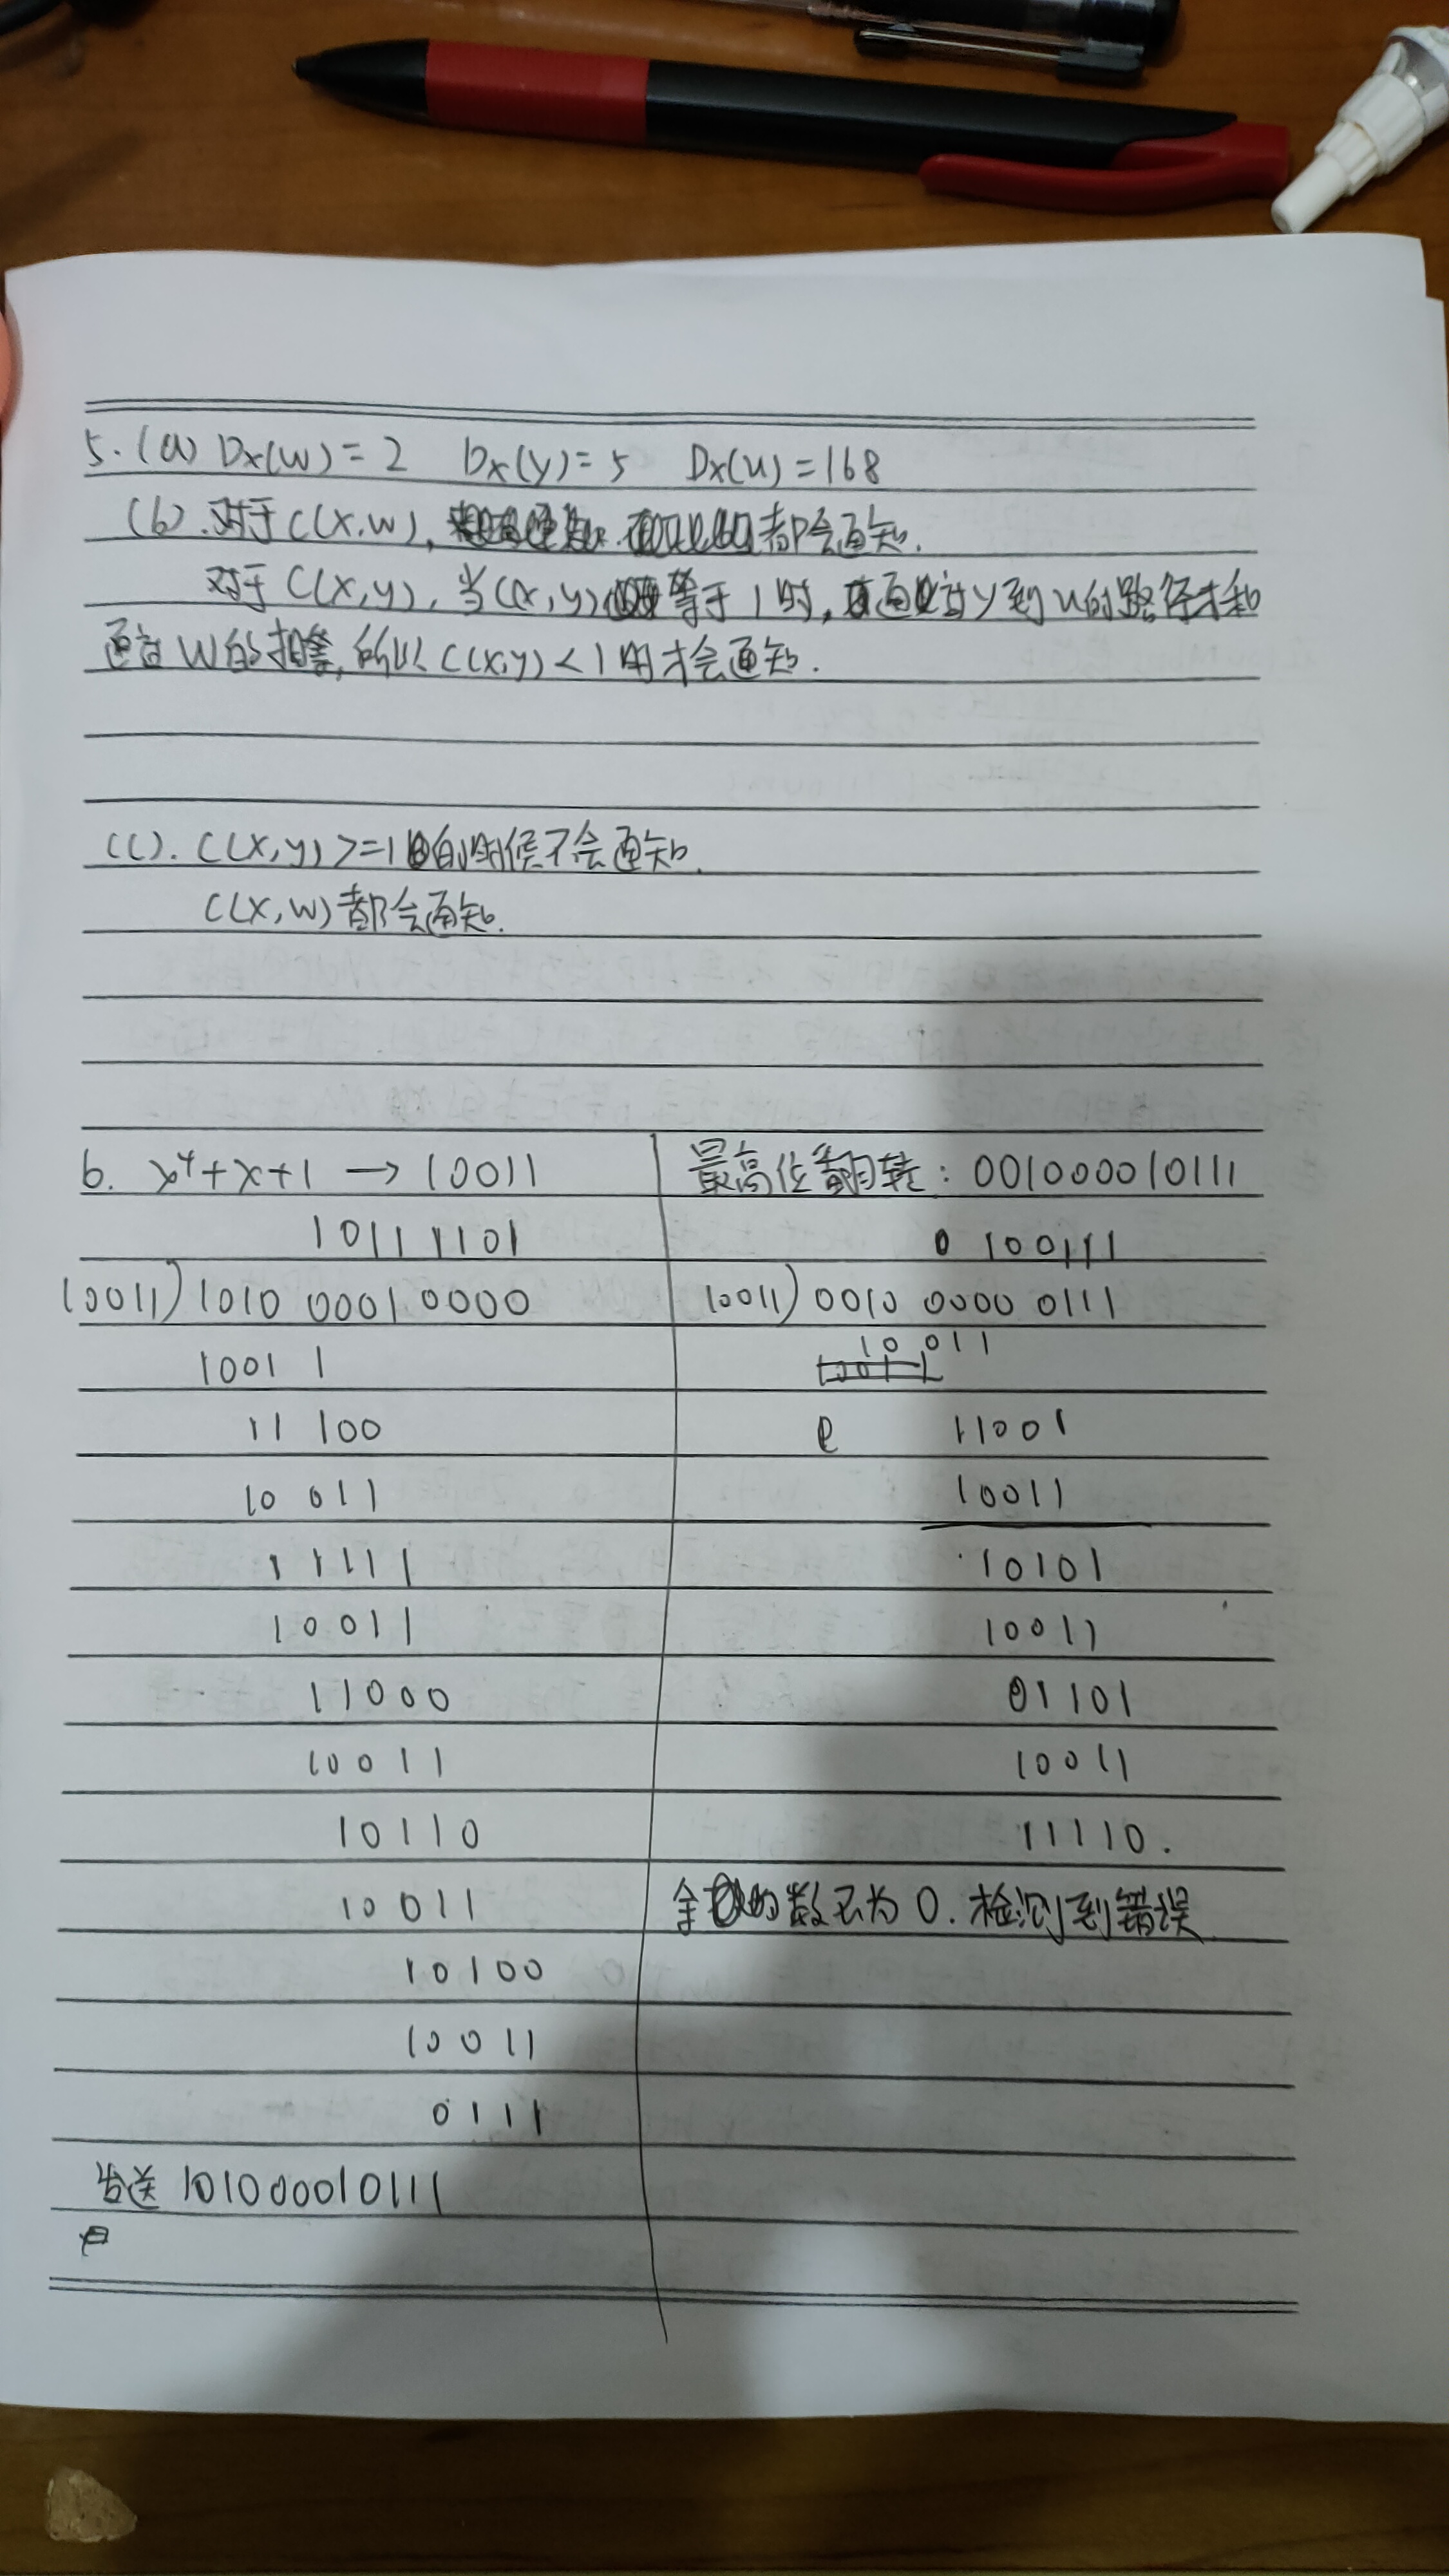 5.(a) Dx(w)=2 Dx(y)=5 Dx(u)=168
(b).对于C(x,w), 都会通知.
对于C(x,y),当C(x,y)等于1时,通过y到u的路径才和
通过w的相等,所以C(x,y)<1时才会通知.
(c). C(x,y)>=1的时候不会通知.
C(x,w)都会通知.
6. x⁴+x+1 → 10011
10111101
10011)1010 0001 0000
1001 1
11 100
10 011
11111
10011
11000
10011
10110
10011
10100
10011
0111
发送 101000010111
最高位翻转: 001000010111
0 100111
10011)0010 0000 0111
10 011
11001
10011
10101
10011
01101
10011
11110.
余的数不为0.检测到错误